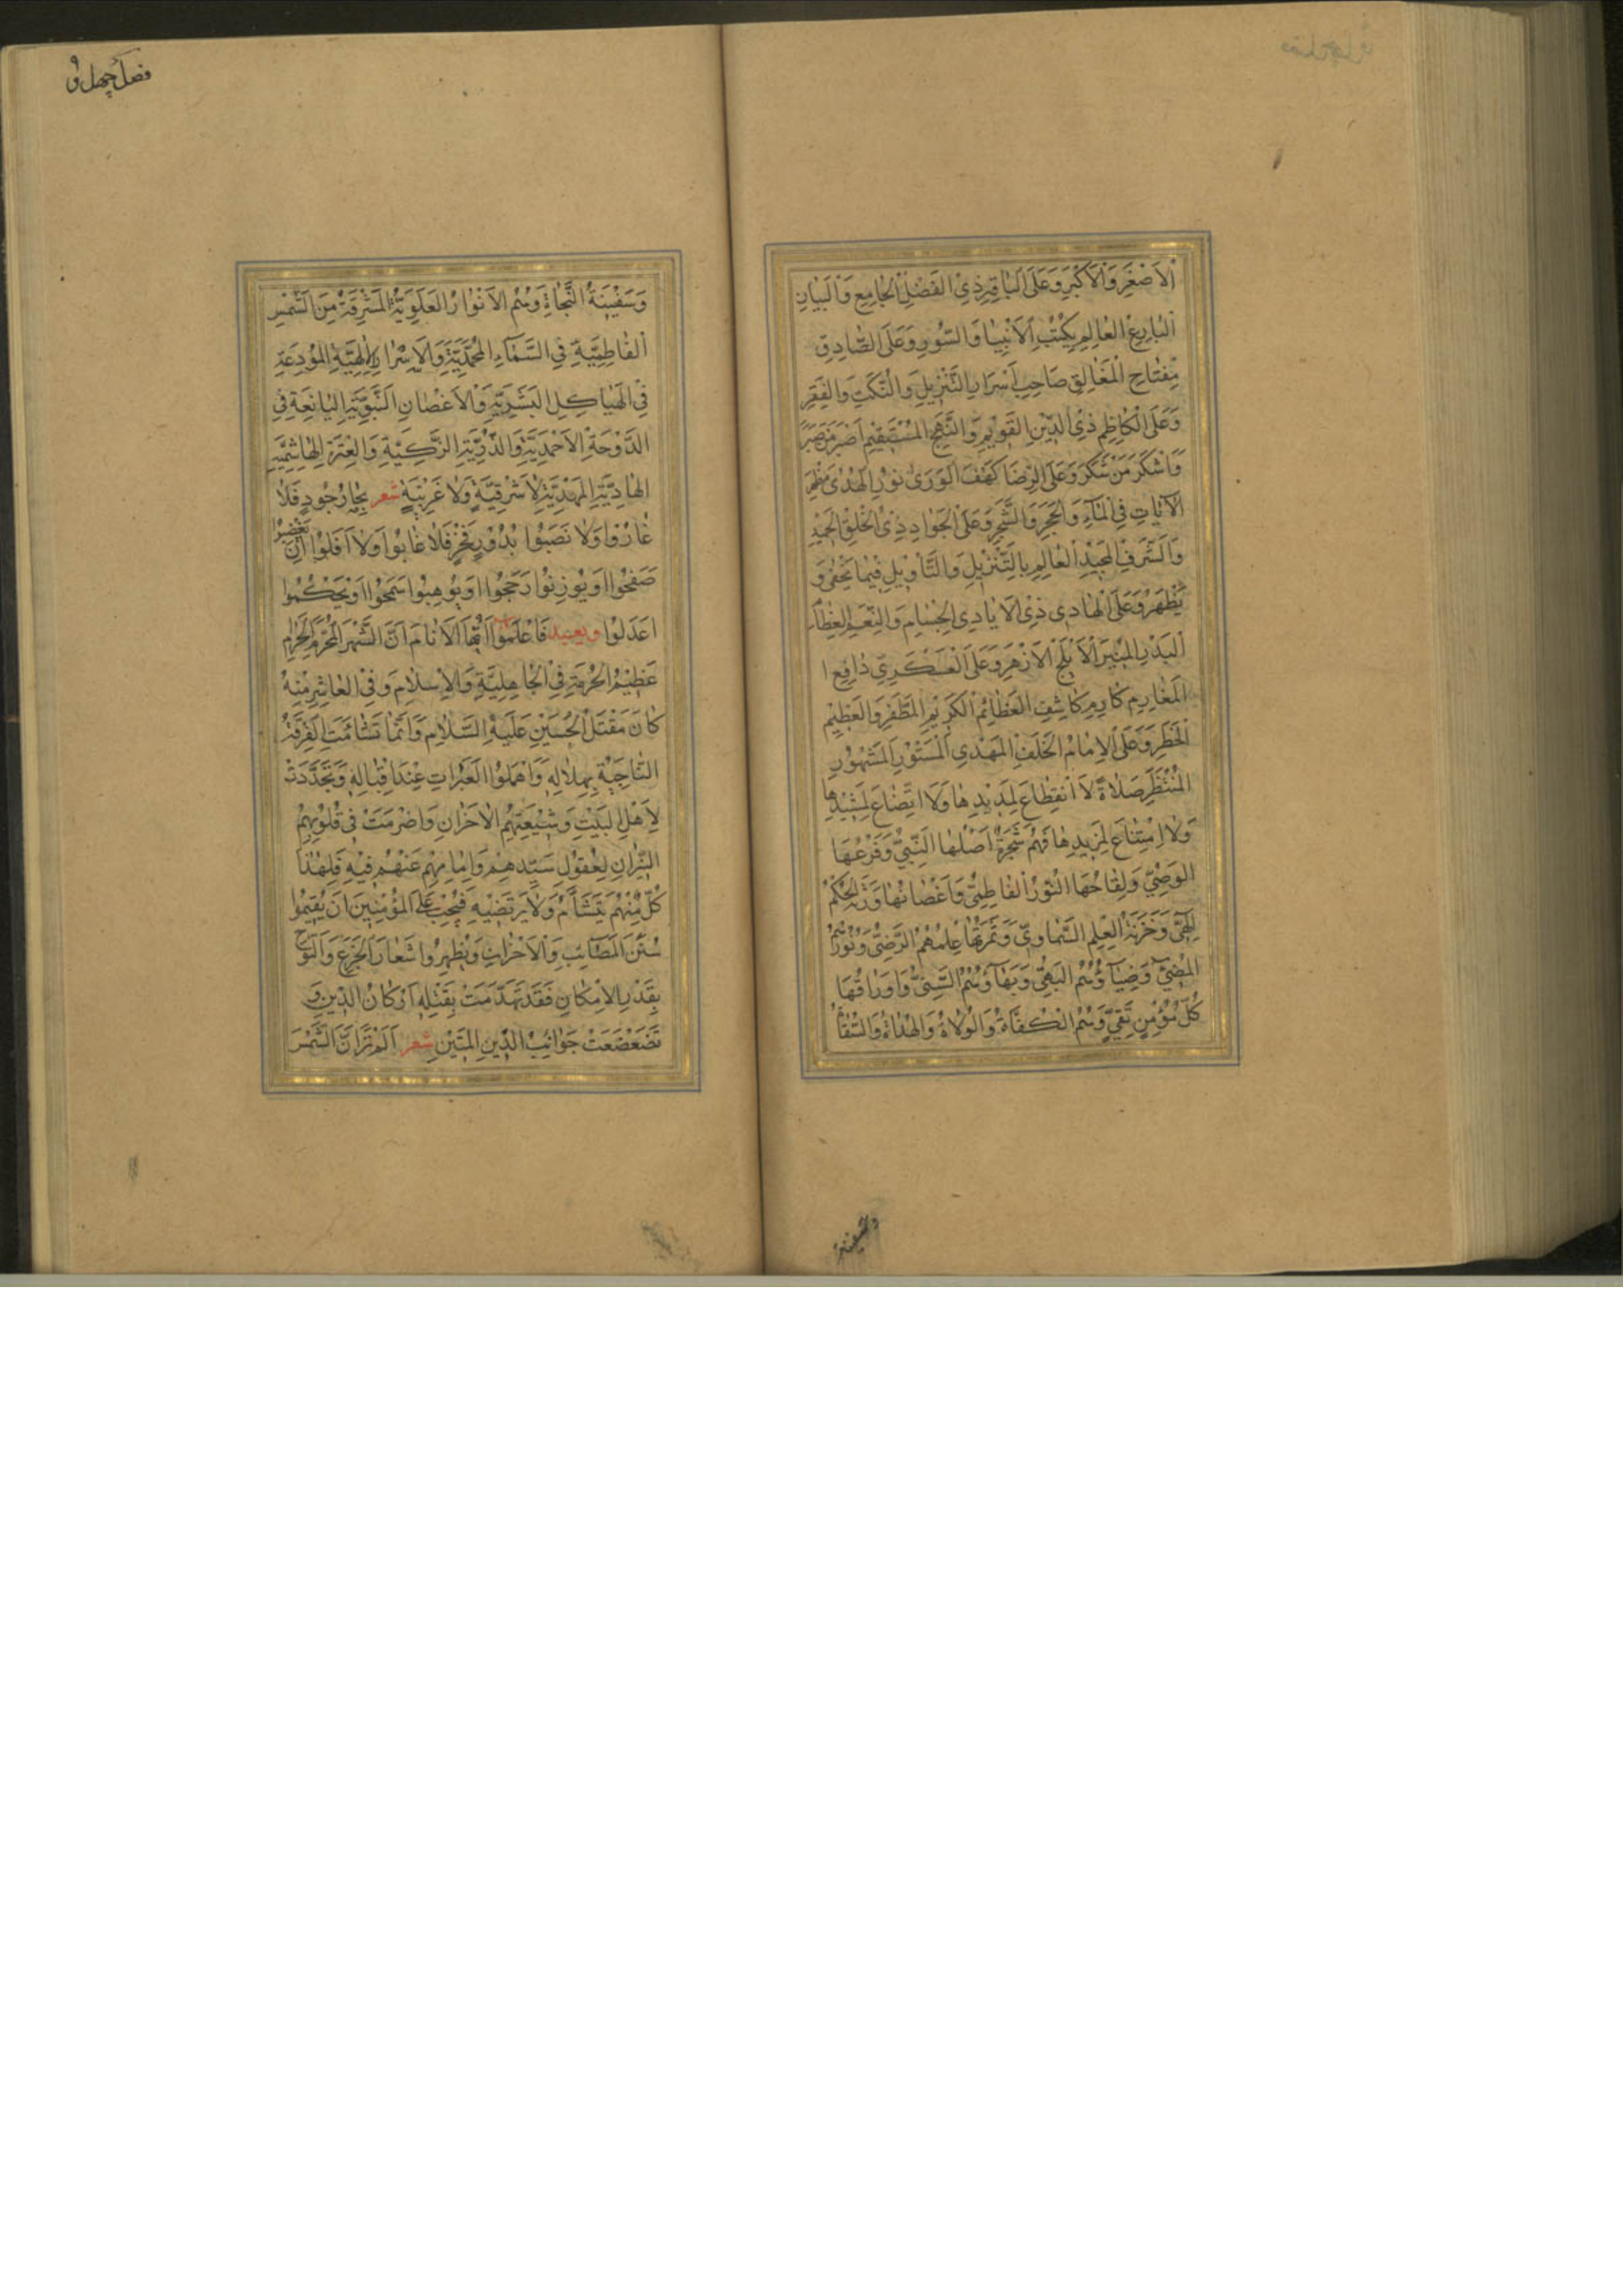 اَلاَصْغَرِ وَالاَكْبَرِ وَعَلَى البَاقِرِ ذِى الفَضْلِ الجَامِعِ وَالبَيَانِ
البَارِعِ العَالِمِ بِكُتُبِ الاَنْبِيَا وَالسُّوَرِ وَعَلَى الصَّادِقِ
مِفْتَاحِ المَغَالِقِ صَاحِبِ اَسْرَارِ التَّنْزِيلِ وَالنُّكَتِ وَالفِقَرِ
وَعَلَى الكَاظِمِ ذِى الدِّيْنِ القَوِيْمِ وَالنَّهْجِ المُسْتَقِيْمِ اَصْبَرَ مَنْ صَبَرَ
وَاَشْكَرَ مَنْ شَكَرَ وَعَلَى الرِّضَا كَهْفِ الوَرَى نُوْرِ الهُدَى مُظْهِرِ
الآيَاتِ فِى المَآءِ وَالحَجَرِ وَالشَّجَرِ وَعَلَى الجَوَادِ ذِى الخُلُقِ الحَمِيْدِ
وَالشَّرَفِ المَجِيْدِ العَالِمِ بِالتَّنْزِيْلِ وَالتَّأوِيْلِ فِيْمَا يَخْفَى وَ
يَظْهَرُ وَعَلَى الهَادِى ذِى الاَيَادِى الجِسَامِ وَالنِّعَمِ العِظَامِ
البَدْرِ المُنِيْرِ الاَبْلَجِ الاَزْهَرِ وَعَلَى العَسْكَرِىِّ دَافِعِ ا
المَغَارِمِ كَاشِفِ العَظَائِمِ الكَرِيْمِ المُظَفَّرِ وَالعَظِيْمِ
الخَطَرِ وَعَلَى الاِمَامِ الخَلَفِ المَهْدِى المَسْتُوْرِ المَشْهُوْرِ
المُنْتَظَرِ صَلَاةً لَا انْقِطَاعَ لِمَدِيْدِهَا وَلَا اتِّضَاعَ لِمَشِيْدِهَا
وَلَا امْتِنَاعَ لِمَزِيْدِهَا فَهُمْ شَجَرَةٌ اَصْلُهَا النَّبِىُّ وَفَرْعُهَا
الوَصِىُّ وَلِقَاحُهَا النُّوْرُ الفَاطِمِىُّ وَاَغْصَانُهَا
وَخَزَنَةُ العِلْمِ السَّمَاوِىِّ وَثَمَرَتُهَا عِلْمُهُمُ الرَّضِىُّ وَنُوْرُهُمُ
المُضِىْءُ وَضِيَآؤُهُمُ البَهِىُّ وَبَهَآؤُهُمُ السَّنِىُّ وَاَوْرَاقُهَا
كُلُّ مُؤْمِنٍ تَقِىٍّ وَهُمُ الكُفَاةُ وَالوُلَاةُ وَالهُدَاةُ وَالسُّقَاةُ
وسفينة
فصل چهل و
وَسَفِيْنَةُ النَّجَاةِ وَهُمُ الاَنْوَارُ العَلَوِيَّةُ المُشْرِقَةُ مِنَ الشَّمْسِ
الفَاطِمِيَّةِ فِى السَّمَآءِ المُحَمَّدِيَّةِ وَالاَسْرَارِ الاِلهِيَّةِ المُوْدَعَةِ
فِى الهَيَاكِلِ البَشَرِيَّةِ وَالاَغْصَانِ النَّبَوِيَّةِ اليَانِعَةِ فِى
الدَّوْحَةِ الاَحْمَدِيَّةِ وَالذُّرِّيَّةِ الزَّكِيَّةِ وَالعِتْرَةِ الهَاشِمِيَّةِ
الهَادِيَّةِ المَهْدِيَّةِ لَا شَرْقِيَّةٍ وَلَا غَرْبِيَّةٍ شعر بِحَارُ جُوْدٍ فَلَا
غَارُوْا وَلَا نَضَبُوا بُدُوْرُ فَخْرٍ فَلَا غَابُوا وَلَا اَفَلُوا اِنْ يُغْضَبُوا
صَفَحُوا اَوْ يُوْزَنُوا رَجَحُوا اَوْ يُوْهَبُوا سَمَحُوا اَوْ يَحْكُمُوا
عَدَلُوا وبعد فَاعْلَمُوا اَيُّهَا الاَنَامُ اَنَّ الشَّهْرَ المُحَرَّمَ الحَرَامَ
عَظِيْمُ الحُرْمَةِ فِى الجَاهِلِيَّةِ وَالاِسْلَامِ وَفِى العَاشِرِ مِنْهُ
كَانَ مَقْتَلُ الحُسَيْنِ عَلَيْهِ السَّلَامُ وَاِنَّمَا تَشَائَمَتِ الفِرْقَةُ
النَّاجِيَةُ بِهِلَالِهِ وَاَهْمَلُوا العَبَرَاتِ عِنْدَ اِقْبَالِهِ وَتَجَدَّدَتْ
لِاَهْلِ البَيْتِ وَشِيْعَتِهِمُ الاَحْزَانُ وَاَضْرَمَتْ فِى قُلُوْبِهِمُ
النِّيْرَانُ لِعُقُوْلِ سَيِّدِهِمْ وَاِمَامِهِمْ عَنْهُمْ فِيْهِ فَلِهٰذَا
كُلٌّ مِنْهُمْ يَتَشَأَّمُ وَلَا يَرْتَضِيْهِ فَيَجِبُ عَلَى المُؤْمِنِيْنَ اَنْ يُقِيْمُوا
سُنَنَ المَصَائِبِ وَالاَحْزَانِ وَيُظْهِرُوا شِعَارَ الجَزَعِ وَالنَّوْحِ
بِقَدْرِ الاِمْكَانِ فَقَدْ تَهَدَّمَتْ بِقَتْلِهِ اَرْكَانُ الدِّيْنِ وَ
تَضَعْضَعَتْ جَوَانِبُ الدِّيْنِ المَتِيْنِ شعر اَلَمْ تَرَ اَنَّ الشَّمْسَ